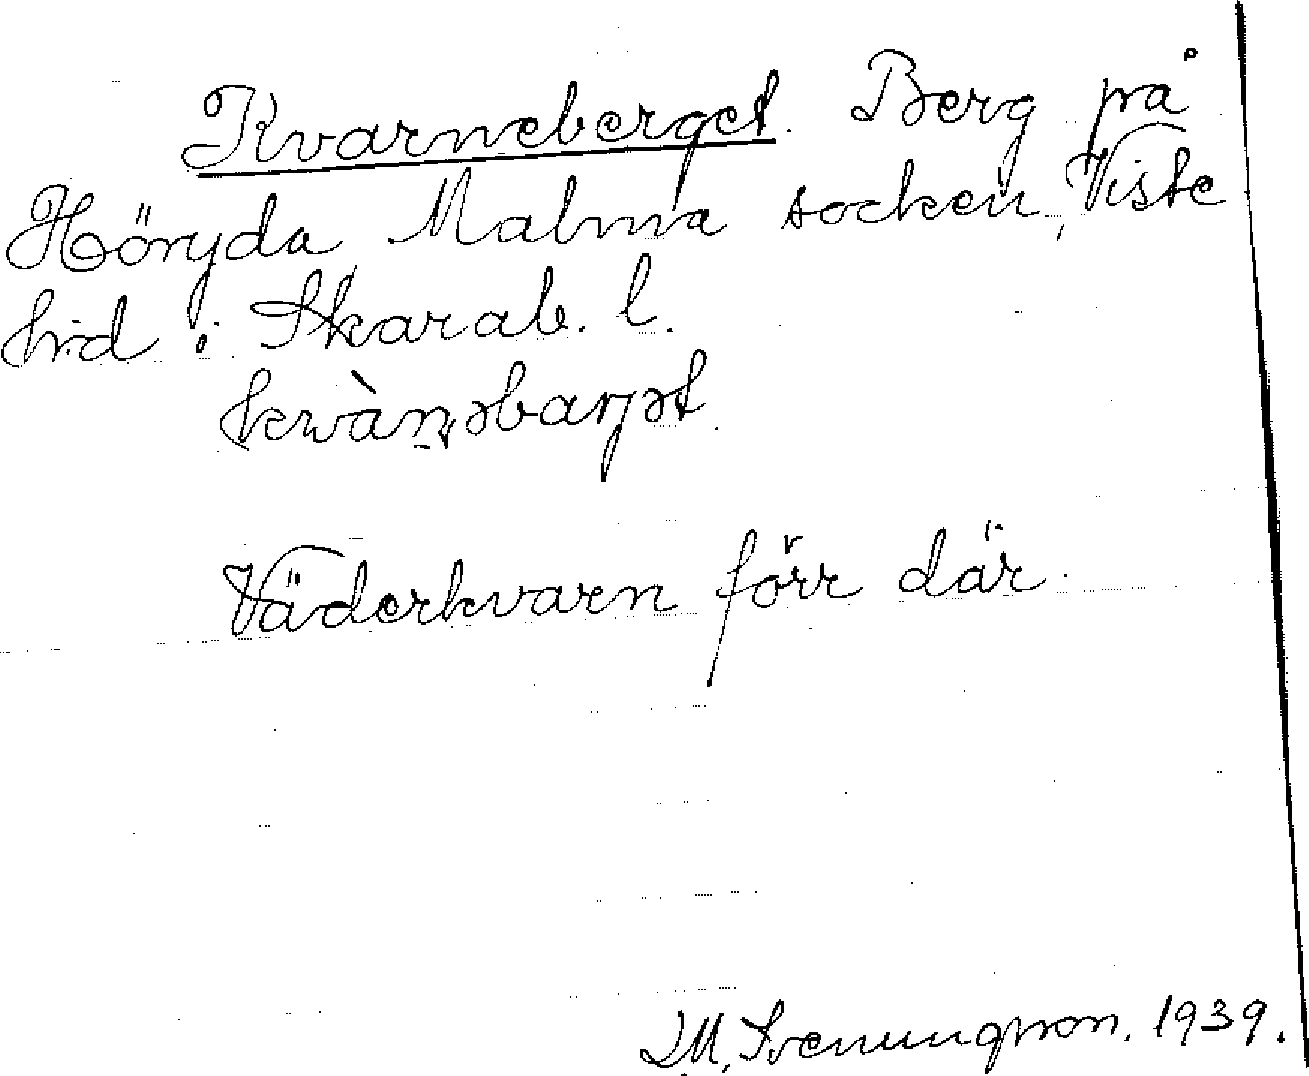 Kvarneberget. Berg på
Höryda Malma socken, Viste
hrd i Skarab. l.
kwàṇəbarjət.
Väderkvarn förr där.
M. Svenungsson. 1939.